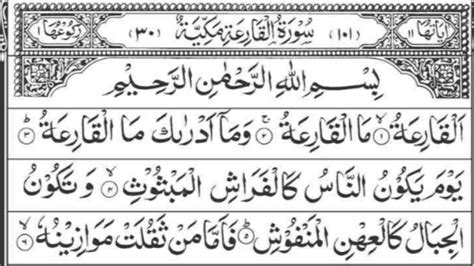 اٰیاتها ۱۱ (۱۰۱) سُوْرَةُ الْقَارِعَةِ مَكِّیَّةٌ (۳۰) رکوعها ۱
بِسْمِ اللهِ الرَّحْمٰنِ الرَّحِیْمِ
اَلْقَارِعَةُ ۙ۱ مَا الْقَارِعَةُ ۚ۲ وَمَاۤ اَدْرٰىكَ مَا الْقَارِعَةُ ؕ۳
یَوْمَ یَكُوْنُ النَّاسُ كَالْفَرَاشِ الْمَبْثُوْثِ ۙ۴ وَ تَكُوْنُ
الْجِبَالُ كَالْعِهْنِ الْمَنْفُوْشِ ؕ۵ فَاَمَّا مَنْ ثَقُلَتْ مَوَازِیْنُهٗ ۙ۶